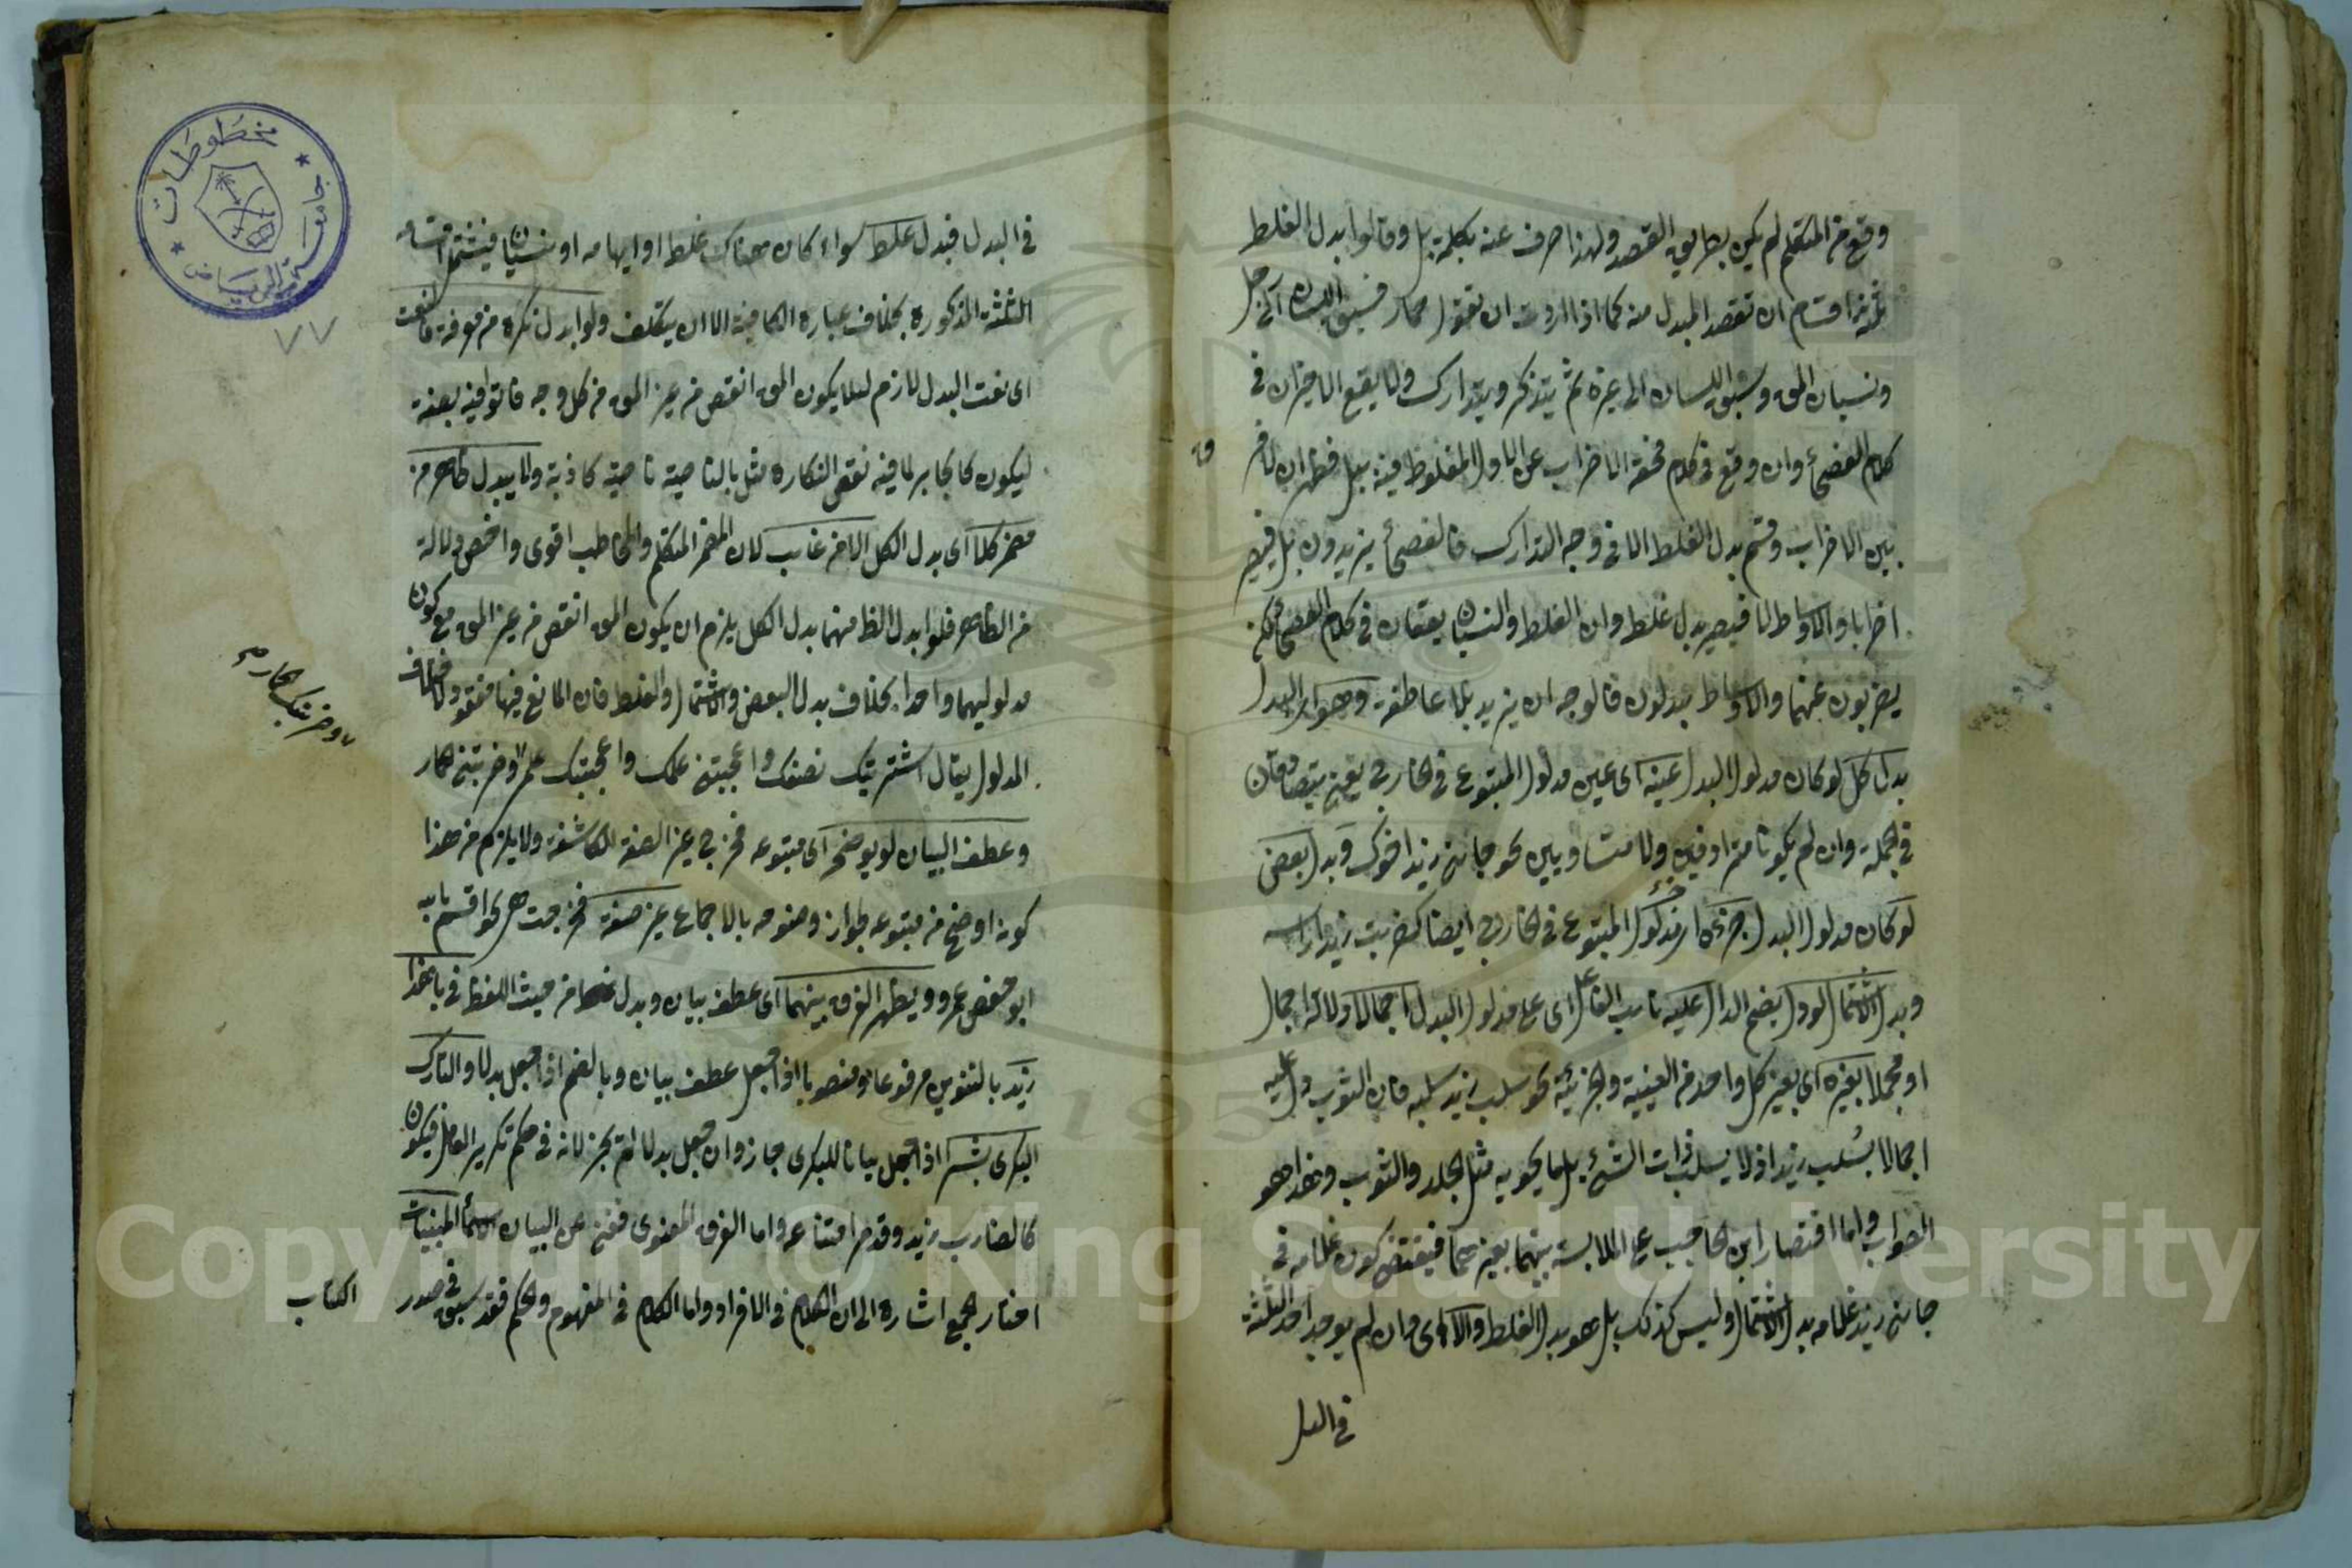 وقع من المتكلم لم يكن بطريق القصد ولهذا صرف عنه بكلمة بل وقالوا بدل الغلط
ثلثة اقسام ان تقصد المبدل منه كما اذا اردت ان تقول حمار فسبق اللسان الى رجل
ونسيان المق وسبق اللسان الى غيره ثم يتذكر ويتدارك ولا يقع الاخيران في
كلام الفصحأ وان وقع في كلام فحقه الاضراب عن الاول المغلوط فيه ببل فظهر ان لا فر
ق
بين الاضراب وقسم بدل الغلط الا في وجه التدارك فالفصحأ يزيدون بل فيصير
اضرابا والاوساط لا فيصير بدل غلط وان الغلط والنسيان يقعان في كلام الفصحأ لكن
يضربون عنهما والاوساط يبدلون فالوجه ان يزيد بلا عاطفة وهو اى البدل
بدل كل لو كان مدلول البدل عينه اى عين مدلول المبتوع في الخارج يعنى يتصادقان
في الجملة وان لم يكونا مترادفين ولا متساويين نحو جاءنى زيد اخوك وبدل بعض
لو كان مدلول البدل جزءه اى جزء مدلول المبتوع في الخارج ايضا كضربت زيدا راسه
وبدل الاشتمال لو دل بضم الدال عليه نائب الفاعل اى على مدلول البدل اجمالا دلالة اجمال
او مجملا بغيره اى بغير كل واحد من العينية والجزئية نحو سلب زيد سلبه فان الثوب دل عليه
اجمالا بسلب زيد اذ لا يسلب ذات الشئ بل ما يحويه مثل الجلد والثوب وهذا هو
الصواب واما اقتصار ابن الحاجب على الملابسة بينهما بغيرهما فيقتضى كون غلامه في
جاءنى زيد غلامه بدل الاشتمال وليس كذلك بل هو بدل الغلط والا اى وان لم يوجد احد الثلثة
في البدل
في البدل فبدل غلط سواء كان هناك غلط او ايهامه او نسيان فيشتمل اقسامه
الثلثة المذكورة بخلاف عبارة الكافية الا ان يتكلف ولو ابدل نكرة من معرفة فالنعت
اى نعت البدل لازم لئلا يكون المق انقص من غير المق من كل وجه فاتوا فيه بصفة
ليكون كالجابر لما فيه نقص النكارة مثل بالناصية ناصية كاذبة ولا يبدل ظاهر من
مضمر كلا اى بدل الكل الا من غائب لان المضمر المتكلم والمخاطب اقوى واخص دلالة
من الظاهر فلو ابدل الظ منهما بدل الكل يلزم ان يكون المق انقص من غير المق مع كون
مدلوليهما واحدا بخلاف بدل البعض والاشتمال والغلط فان المانع فيها مفقود لاختلاف
المدلول يقال اشتريتك نصفك واعجبتنى علمك واعجبتك علمى وضربتنى حمار
وضربتك الحمار
وعطف البيان لو يوضح اى متبوعه فخرج غير الصفة الكاشفة ولا يلزم من هذا
كونه اوضح من متبوعه لجواز وضوحه بالاجماع غير صفة فخرجت هى نحو اقسم بالله
ابو حفص عمر ويظهر الفرق بينهما اى عطف بيان وبدل من حيث اللفظ في يا هذا
زيد بالتنوين مرفوعا ومنصوبا اذا جعل عطف بيان وبالضم اذا جعل بدلا والتارك
البكرى بشر اذا جعل بيانا للبكرى جاز وان جعل بدلا لم يجز لانه في حكم تكرير العامل فيكون
كالضارب زيد وقد مر امتناعه واما الفرق المعنوى فغنى عن البيان الاسمأ المبنيات
اختار الجمع اشارة الى ان الكلام في الافراد واما الكلام في المفهوم والحكم فقد سبق في صدر
الكتاب
مخطوطات
جامعة الرياض
٧٧
Copyright © King Saud University
195